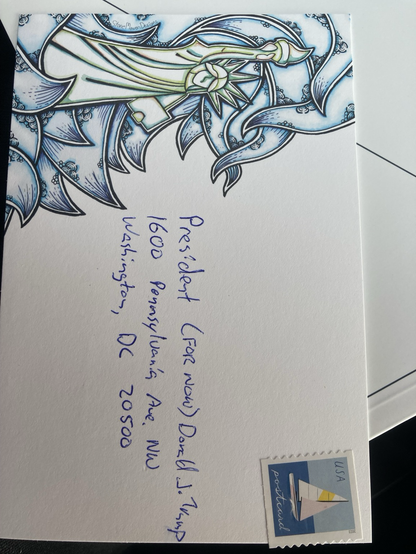 President (FOR NOW) Donald J. Trump
1600 Pennsylvania Ave. NW
Washington, DC 20500
USA
postcard